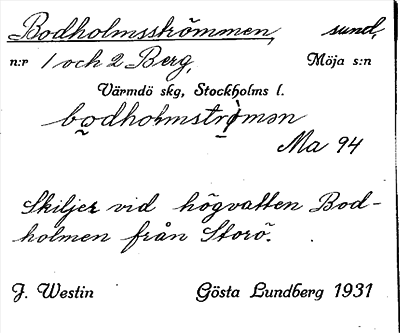 Bodholmsströmmen, sund,
n:r 1 och 2 Berg, Möja s:n
Värmdö skg, Stockholms l.
Ma 94
Skiljer vid högvatten Bod-
holmen från Storö.
J. Westin Gösta Lundberg 1931